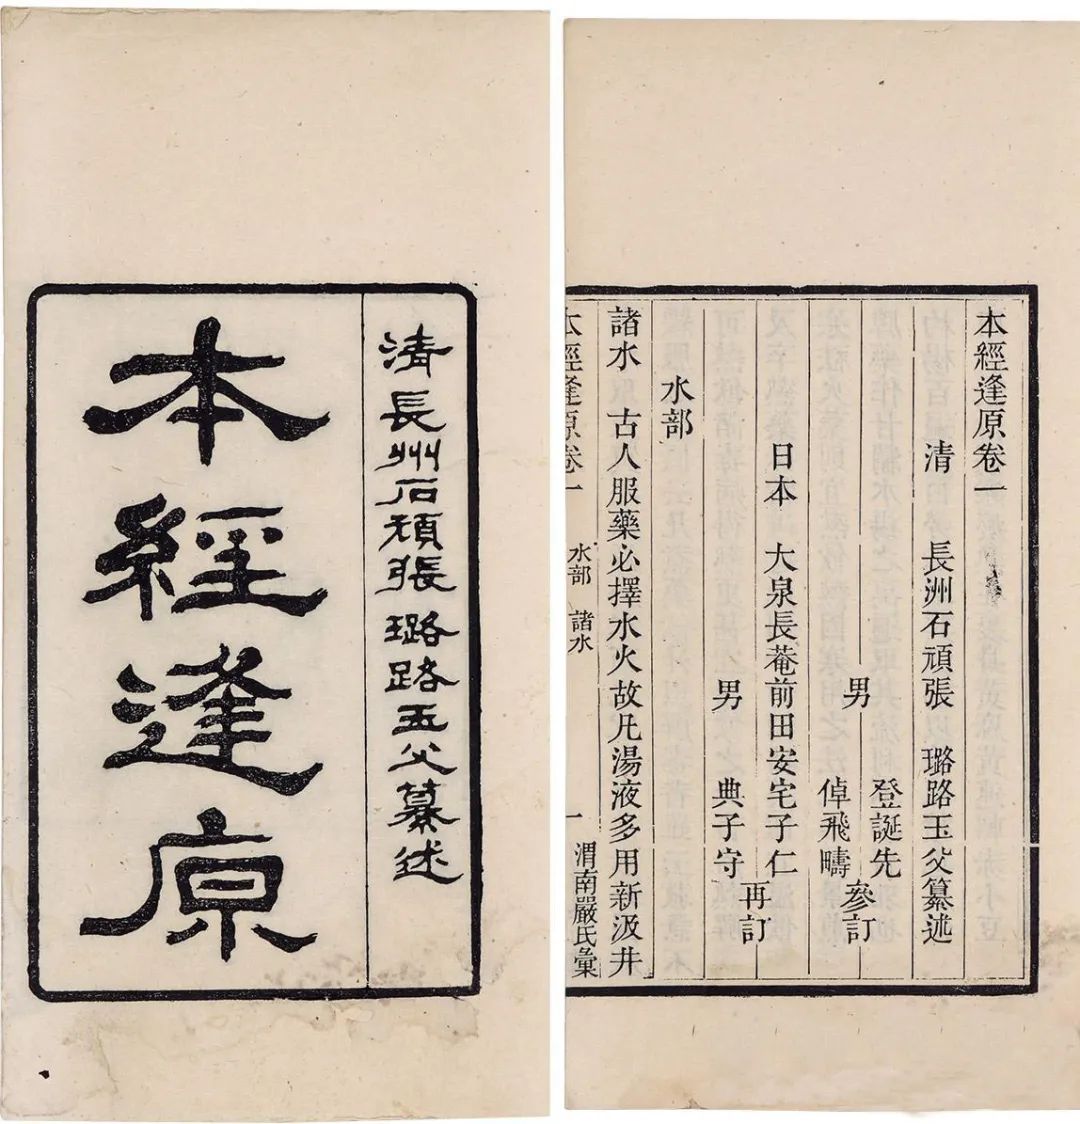 清長州石頑張璐路玉父纂述
本經逢原
本經逢原卷一
清 長洲石頑張 璐路玉父纂述
男 登誕先
倬飛疇
參訂
日本 大泉長菴前田安宅子仁
男 典子守
再訂
水部
諸水 古人服藥必擇水火故凡湯液多用新汲井
本經逢原卷一 水部 諸水 一 渭南嚴氏彙